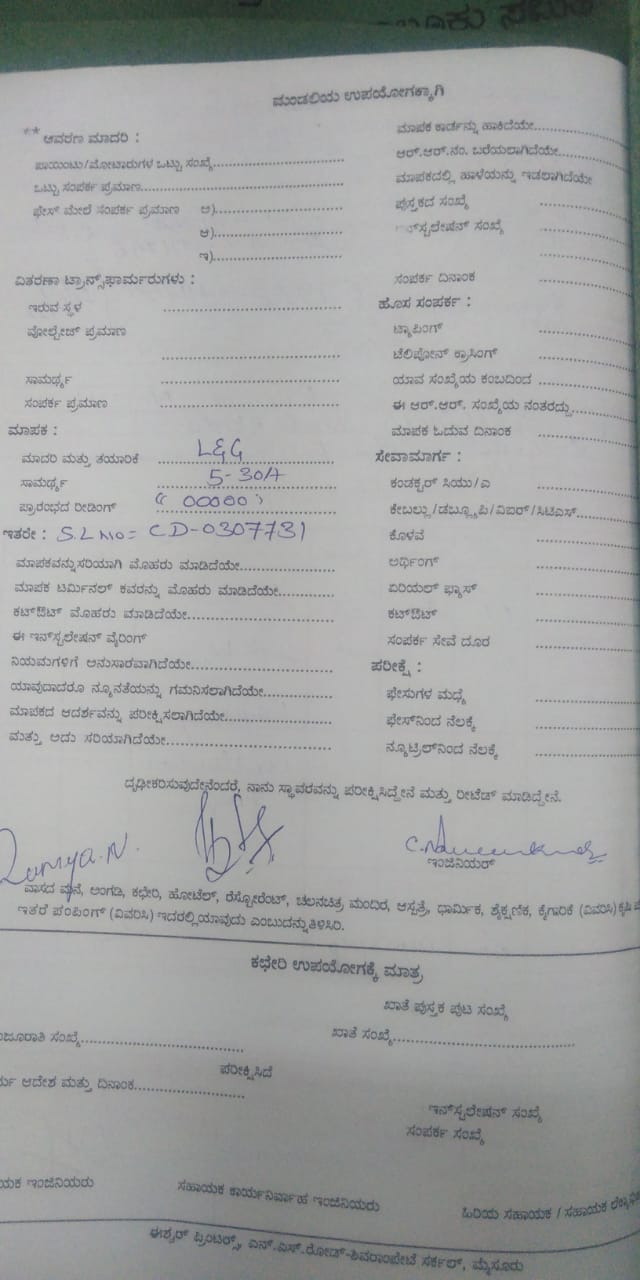 ಮಂಡಲಿಯ ಉಪಯೋಗಕ್ಕಾಗಿ
** ಆವರಣ ಮಾದರಿ :
ಪಾಯಿಂಟು/ಮೋಟಾರುಗಳ ಒಟ್ಟು ಸಂಖ್ಯೆ
ಒಟ್ಟು ಸಂಪರ್ಕ ಪ್ರಮಾಣ
ಫೇಸ್ ಮೇಲೆ ಸಂಪರ್ಕ ಪ್ರಮಾಣ ಅ)
ಆ)
ಇ)
ವಿತರಣಾ ಟ್ರಾನ್ಸ್‌ಫಾರ್ಮರುಗಳು :
ಇರುವ ಸ್ಥಳ
ವೋಲ್ಟೇಜ್ ಪ್ರಮಾಣ
ಸಾಮರ್ಥ್ಯ
ಸಂಪರ್ಕ ಪ್ರಮಾಣ
ಮಾಪಕ :
ಮಾದರಿ ಮತ್ತು ತಯಾರಿಕೆ L&G
ಸಾಮರ್ಥ್ಯ 5-30A
ಪ್ರಾರಂಭದ ರೀಡಿಂಗ್ "00000"
ಇತರೇ : S.L No = CD-0307731
ಮಾಪಕವನ್ನು ಸರಿಯಾಗಿ ಮೊಹರು ಮಾಡಿದೆಯೇ
ಮಾಪಕ ಟರ್ಮಿನಲ್ ಕವರನ್ನು ಮೊಹರು ಮಾಡಿದೆಯೇ
ಕಟ್‌ಔಟ್ ಮೊಹರು ಮಾಡಿದೆಯೇ
ಈ ಇನ್‌ಸ್ಟಲೇಷನ್ ವೈರಿಂಗ್
ನಿಯಮಗಳಿಗೆ ಅನುಸಾರವಾಗಿದೆಯೇ
ಯಾವುದಾದರೂ ನ್ಯೂನತೆಯನ್ನು ಗಮನಿಸಲಾಗಿದೆಯೇ
ಮಾಪಕದ ಆದರ್ಶವನ್ನು ಪರೀಕ್ಷಿಸಲಾಗಿದೆಯೇ
ಮತ್ತು ಅದು ಸರಿಯಾಗಿದೆಯೇ
ಮಾಪಕ ಕಾರ್ಡನ್ನು ಹಾಕಿದೆಯೇ
ಆರ್.ಆರ್.ನಂ. ಬರೆಯಲಾಗಿದೆಯೇ
ಮಾಪಕದಲ್ಲಿ ಹಾಳೆಯನ್ನು ಇಡಲಾಗಿದೆಯೇ
ಪುಸ್ತಕದ ಸಂಖ್ಯೆ
ಇನ್‌ಸ್ಟಲೇಷನ್ ಸಂಖ್ಯೆ
ಸಂಪರ್ಕ ದಿನಾಂಕ
ಹೊಸ ಸಂಪರ್ಕ :
ಟ್ಯಾಪಿಂಗ್
ಟೆಲಿಪೋನ್ ಕ್ರಾಸಿಂಗ್
ಯಾವ ಸಂಖ್ಯೆಯ ಕಂಬದಿಂದ
ಈ ಆರ್.ಆರ್. ಸಂಖ್ಯೆಯ ನಂತರದ್ದು
ಮಾಪಕ ಓದುವ ದಿನಾಂಕ
ಸೇವಾಮಾರ್ಗ :
ಕಂಡಕ್ಟರ್ ಸಿಯು/ಎ
ಕೇಬಲ್ಲು/ಡಬ್ಲ್ಯೂಪಿ/ವಿಐರ್/ಸಿಟಿಎಸ್
ಕೊಳವೆ
ಅರ್ಥಿಂಗ್
ಏರಿಯಲ್ ಫ್ಯೂಸ್
ಕಟ್‌ಔಟ್
ಸಂಪರ್ಕ ಸೇವೆ ದೂರ
ಪರೀಕ್ಷೆ :
ಫೇಸುಗಳ ಮಧ್ಯೆ
ಫೇಸ್‌ನಿಂದ ನೆಲಕ್ಕೆ
ನ್ಯೂಟ್ರಿಲ್‌ನಿಂದ ನೆಲಕ್ಕೆ
ದೃಢೀಕರಿಸುವುದೇನೆಂದರೆ, ನಾನು ಸ್ಥಾವರವನ್ನು ಪರೀಕ್ಷಿಸಿದ್ದೇನೆ ಮತ್ತು ರೀಟೆಡ್ ಮಾಡಿದ್ದೇನೆ.
ಇಂಜಿನಿಯರ್
ವಾಸದ ಮನೆ, ಅಂಗಡಿ, ಕಛೇರಿ, ಹೋಟೆಲ್, ರೆಸ್ಟೋರೆಂಟ್, ಚಲನಚಿತ್ರ ಮಂದಿರ, ಆಸ್ಪತ್ರೆ, ಧಾರ್ಮಿಕ, ಶೈಕ್ಷಣಿಕ, ಕೈಗಾರಿಕೆ (ವಿವರಿಸಿ) ಕೃಷಿ
ಇತರೆ ಪಂಪಿಂಗ್ (ವಿವರಿಸಿ) ಇದರಲ್ಲಿ ಯಾವುದು ಎಂಬುದನ್ನು ತಿಳಿಸಿರಿ.
ಕಛೇರಿ ಉಪಯೋಗಕ್ಕೆ ಮಾತ್ರ
ಖಾತೆ ಪುಸ್ತಕ ಪುಟ ಸಂಖ್ಯೆ
ಸಂಖ್ಯೆ
ಖಾತೆ ಸಂಖ್ಯೆ
ಪರೀಕ್ಷಿಸಿದೆ
ಆದೇಶ ಮತ್ತು ದಿನಾಂಕ
ಇನ್‌ಸ್ಟಲೇಷನ್ ಸಂಖ್ಯೆ
ಸಂಪರ್ಕ ಸಂಖ್ಯೆ
ಇಂಜಿನಿಯರು
ಸಹಾಯಕ ಕಾರ್ಯನಿರ್ವಾಹ ಇಂಜಿನಿಯರು
ಹಿರಿಯ ಸಹಾಯಕ / ಸಹಾಯಕ
ಈಶ್ವರ್ ಪ್ರಿಂಟರ್ಸ್, ಎನ್.ಎಸ್.ರೋಡ್-ಶಿವರಾಂಪೇಟೆ ಸರ್ಕಲ್, ಮೈಸೂರು